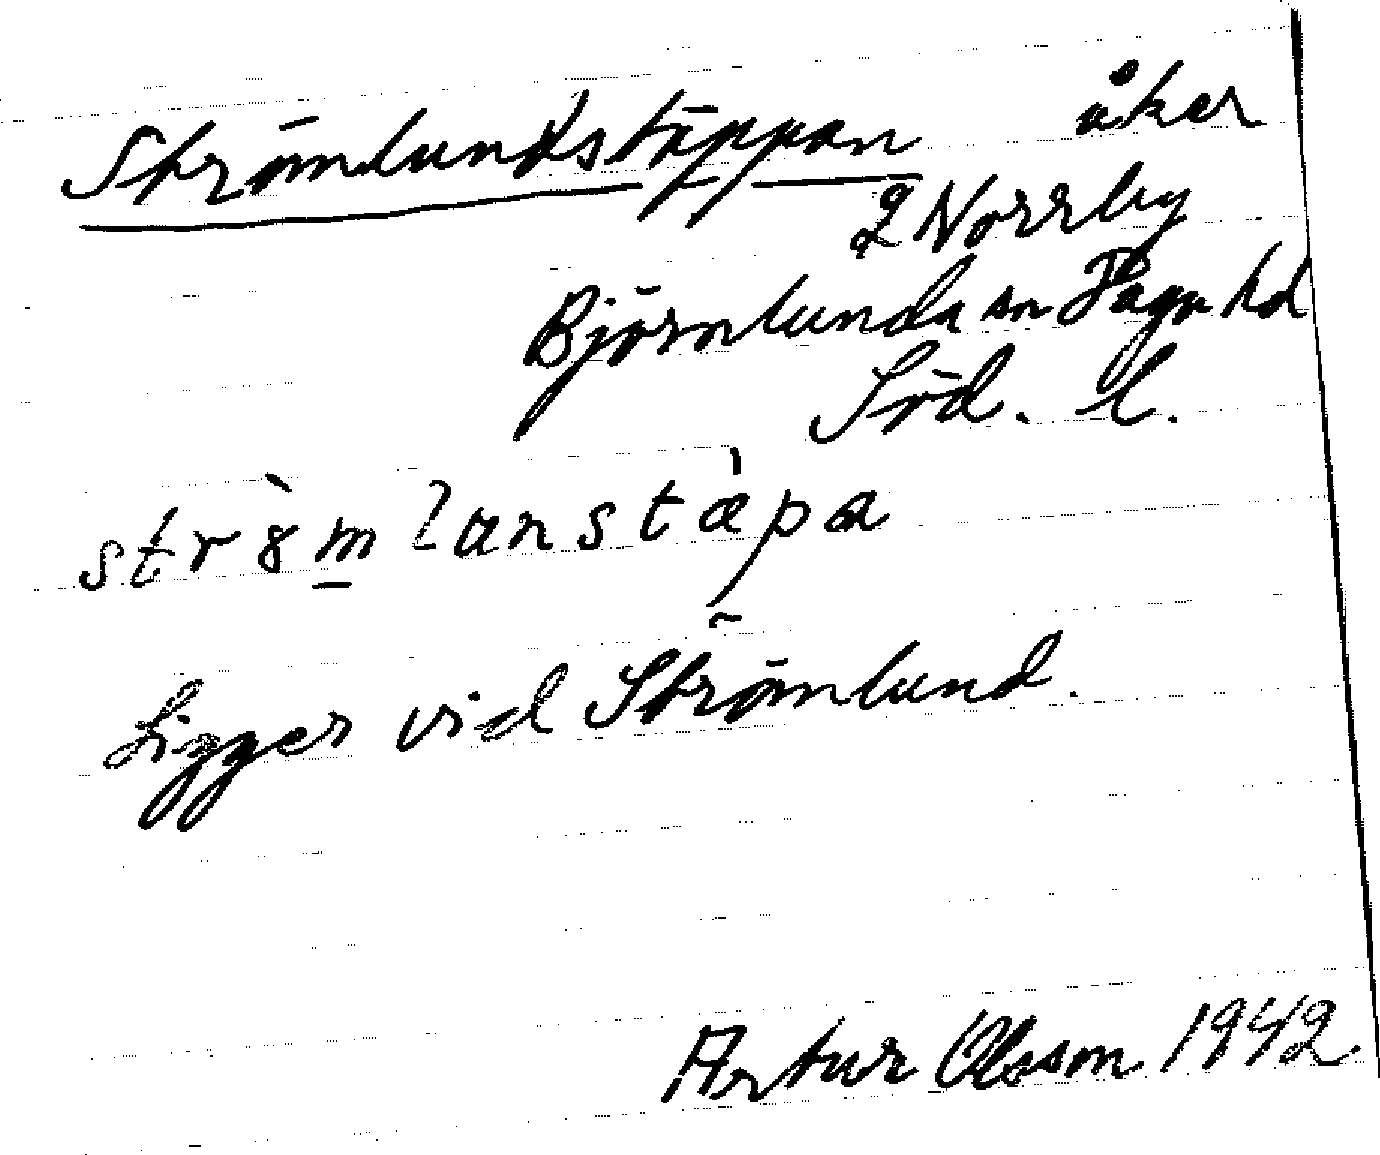 Strömlundstäppan åker
2 Norrby
Björnlunda sn Daga hd
Söd. l.
strömlunstäpa
Ligger vid Strömlund.
Artur Olsson 1942.